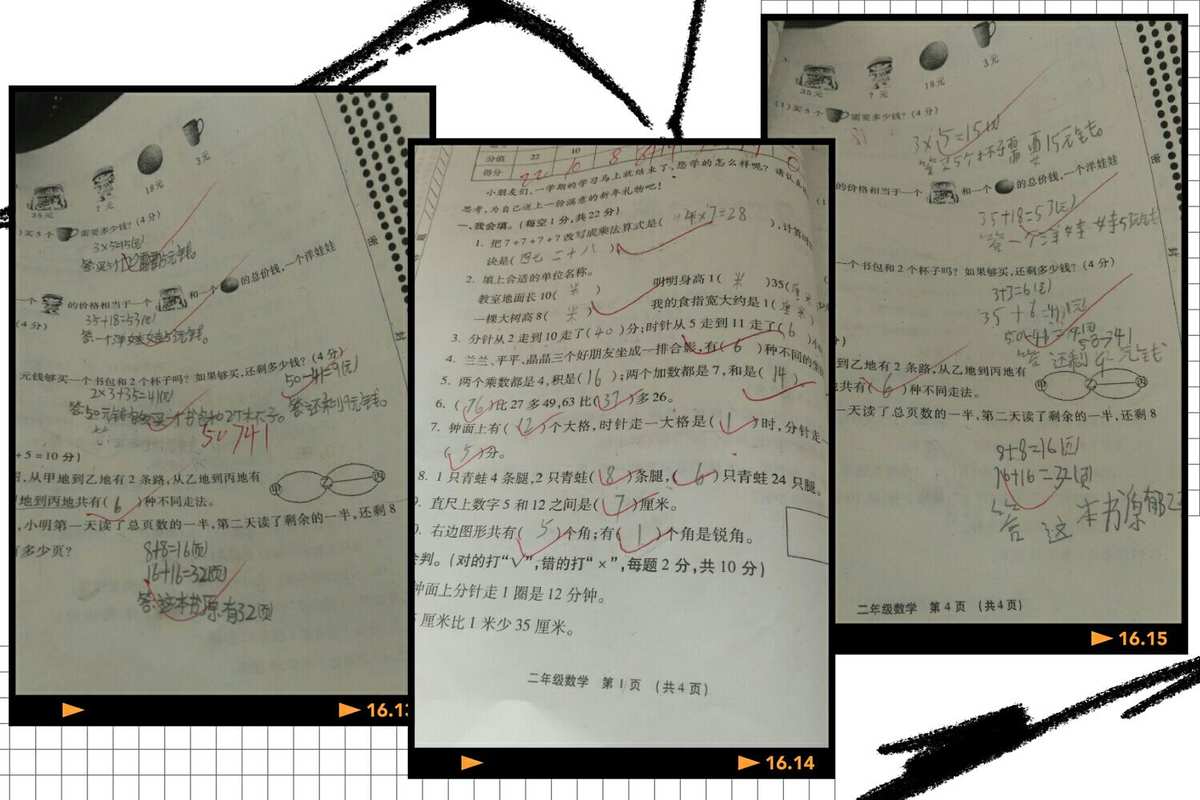 35元
?元
18元
3元
)买5个 需要多少钱?(4分)
3×5=15(元)
一个 的价格相当于一个 和一个 的总价钱,一个洋娃娃
(4分)
35+18=53(元)
元钱够买一个书包和2个杯子吗?如果够买,还剩多少钱?(4分)
50-41=9(元)
2×3+35=41(元)
50>41
+5=10分)
,从甲地到乙地有2条路,从乙地到丙地有
甲 乙 丙
地到丙地共有(6)种不同走法。
,小明第一天读了总页数的一半,第二天读了剩余的一半,还剩8
多少页?
8+8=16(页)
16+16=32(页)
答:这本书原有32(页)
16.13
分值 22 10
得分 22 10 8
小朋友们,一学期的学习马上就结束了,您学的怎么样呢?请认真
思考,为自己送上一份满意的新年礼物吧!
一、我会填。(每空1分,共22分)
1. 把7+7+7+7改写成乘法算式是( 4×7=28 ),计算时
诀是(四七二十八)
2. 填上合适的单位名称。
教室地面长10(米) 明明身高1(米)35(厘米)
一棵大树高8(米) 我的食指宽大约是1(厘米)
3. 分针从2走到10走了(40)分;时针从5走到11走了(6)小
4. 兰兰、平平、晶晶三个好朋友坐成一排合影,有(6)种不同的坐
5. 两个乘数都是4,积是(16);两个加数都是7,和是(14)
6. (76)比27多49,63比(37)多26。
7. 钟面上有(12)个大格,时针走一大格是(1)时,分针走一
(5)分。
8. 1只青蛙4条腿,2只青蛙(8)条腿,(6)只青蛙24只腿。
9. 直尺上数字5和12之间是(7)厘米。
右边图形共有(5)个角;有(1)个角是锐角。
判。(对的打“√”,错的打“×”,每题2分,共10分)
钟面上分针走1圈是12分钟。
厘米比1米少35厘米。
二年级数学 第1页 (共4页)
16.14
35元
?元
18元
3元
(1)买5个 需要多少钱?(4分)
3×5=15(元)
答:买5个杯子需要15元钱
的价格相当于一个 和一个 的总价钱,一个洋娃娃
35+18=53(元)
答 一个洋娃娃53元钱
一个书包和2个杯子吗?如果够买,还剩多少钱?(4分)
3+3=6(元)
35+6=41(元)
50-41=9(元)
50>41
答 还剩9元钱
到乙地有2条路,从乙地到丙地有
甲 乙 丙
共有(6)种不同走法。
一天读了总页数的一半,第二天读了剩余的一半,还剩8
8+8=16(页)
16+16=32(页)
答 这本书原有32
二年级数学 第4页 (共4页)
16.15
密
封